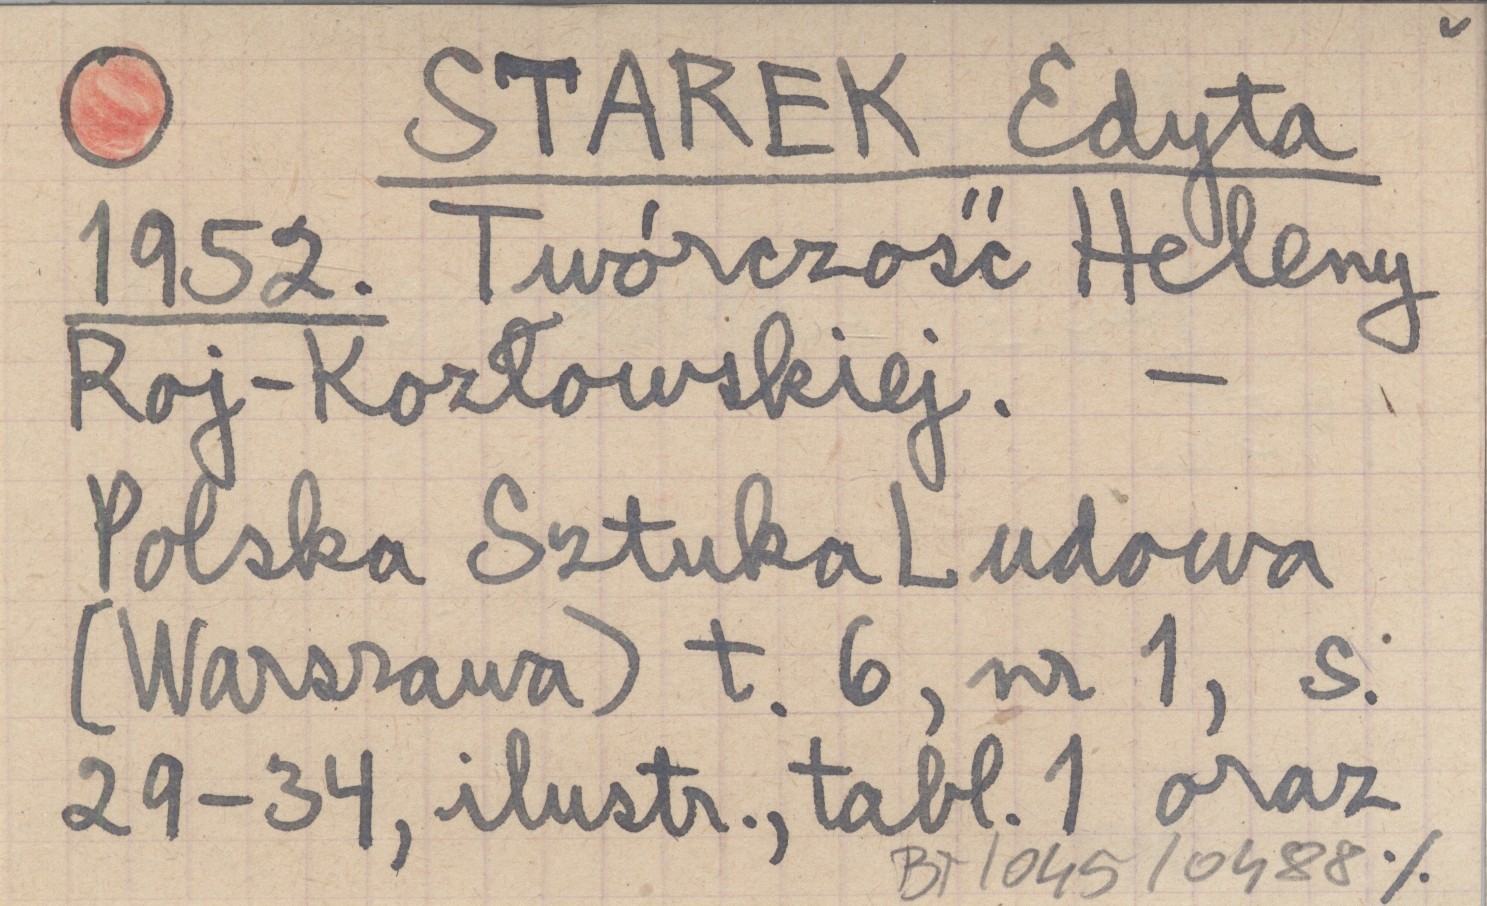 STAREK Edyta
1952. Twórczość Heleny
Roj-Kozłowskiej. —
Polska Sztuka Ludowa
(Warszawa) t. 6, nr 1, s.
29-34, ilustr., tabl. 1 oraz
BT/045/0488 ./.